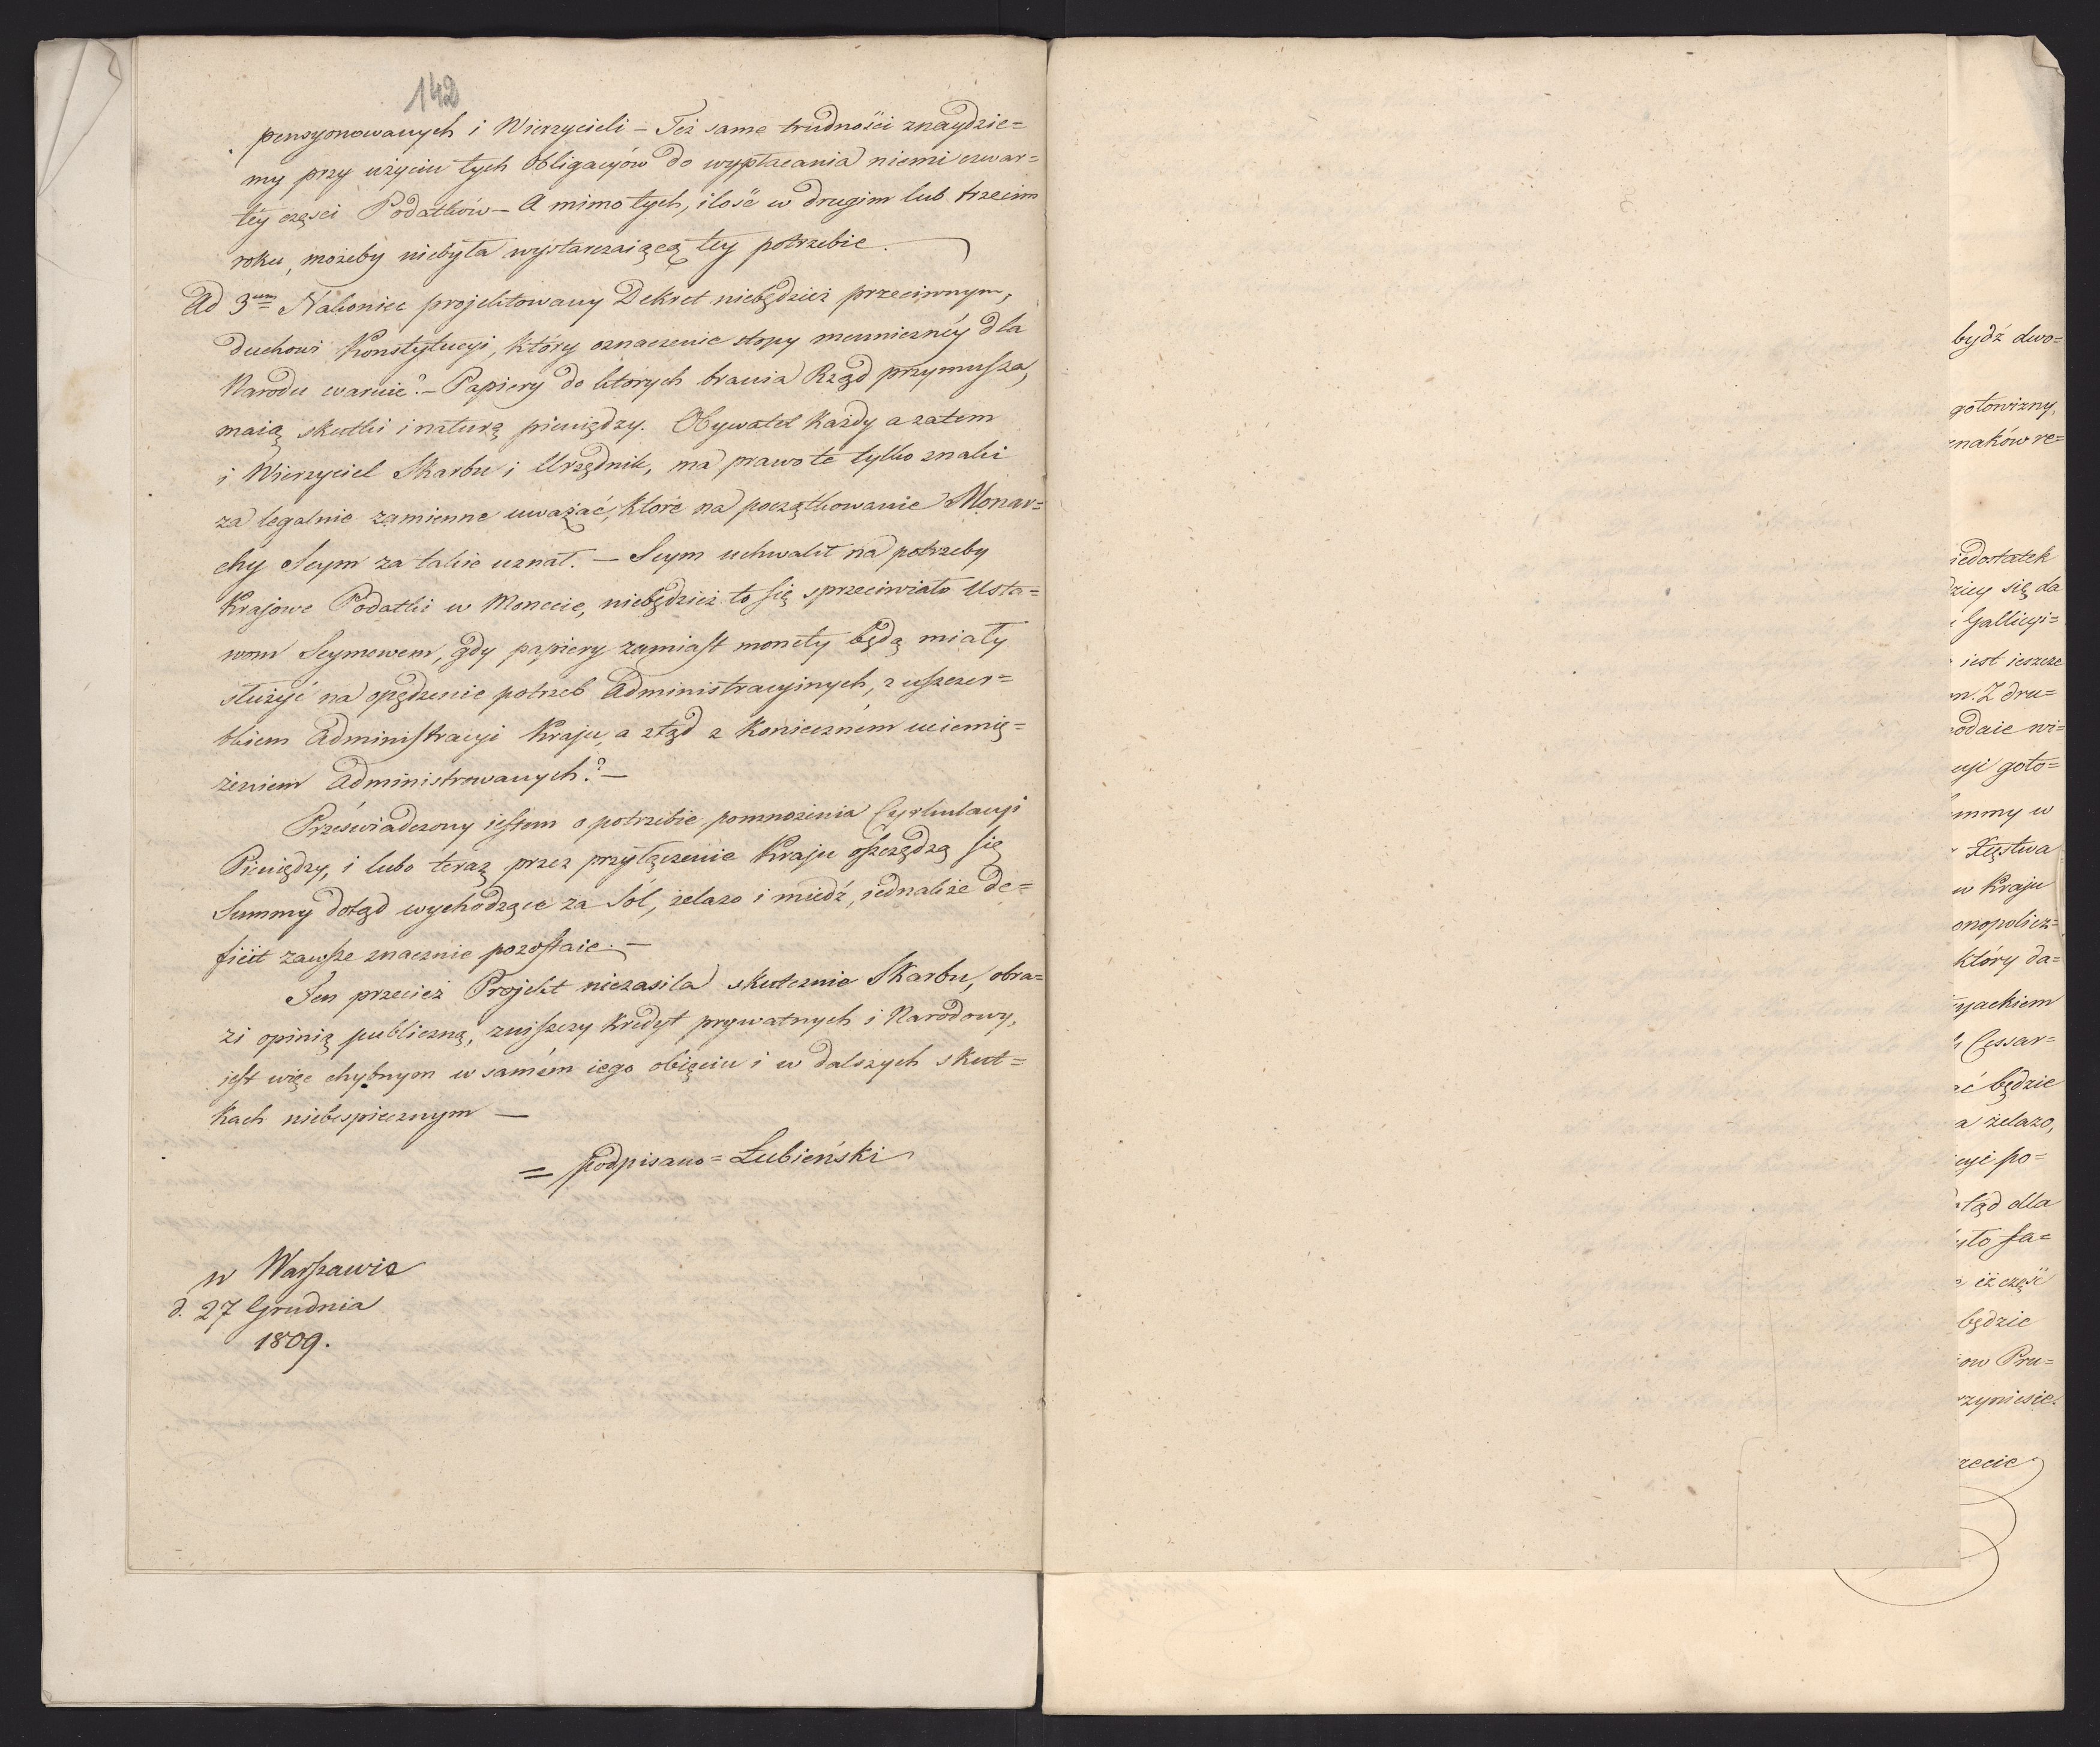 142
pensyonowanych i Wierzycieli – Też same trudności znaydzie=
my przy użyciu tych Obligacyów do wypłacania niemi czwar=
téy części Podatków – A mimo tych, ilość w drugim lub trzecim
roku, możeby niebyła wystarczaiącą téy potrzebie.
Ad 3um Nakoniec projektowany Dekret niebędzież przeciwnym,
duchowi Konstytucyi, który oznaczenie stopy mennicznéy dla
Narodu waruie? – Papiery do których brania Rząd przymusza,
maią skutki i naturę pieniędzy. Obywatel każdy a zatem
i Wierzyciel Skarbu i Urzędnik, ma prawo te tylko znaki
za legalnie zamienne uważać, które na początkowanie Monar=
chy Seym za takie uznał. – Seym uchwalił na potrzeby
Krajowe Podatki w Monecie, niebędzież to się sprzeciwiało Usta=
wom Seymowem, gdy papiery zamiast monety będą miały
służyć na opędzenie potrzeb Administracyinych, z uszczer=
bkiem Administracyi Kraju, a ztąd z koniecznem uciemię=
żeniem Administrowanych? –
Przeświadczony iestem o potrzebie pomnożenia Cyrkulacyi
Pieniędzy, i lubo teraz przez przyłączenie Kraju oszczędzą się
Summy dotąd wychodzące za Sól, żelazo i miedź, iednakże de=
ficit zawsze znacznie pozostaie. –
Ten przecież Projekt niezasila skutecznie Skarbu, obra=
zi opinię publiczną, zniszczy kredyt prywatnych i Narodowy,
jest więc chybnym w samém iego obięciu i w dalszych skut=
kach niebespiecznym –
= podpisano = Łubieński
w Warszawie
d. 27 Grudnia
1809.
bydź dwo=
gotowizny,
znaków re=
iedostatek
dziey się da
Gallicyi=
iest ieszcze
n. Z dru=
odaie wi=
cyi goto=
mmy w
Xięstwa
w Kraju
onopolicz=
który da=
ryackiem
Cessar=
ć będzie
a żelazo,
cyi po=
tąd dla
sto fa=
iż część
będzie
ow Pru=
rzyniesie.
zecie